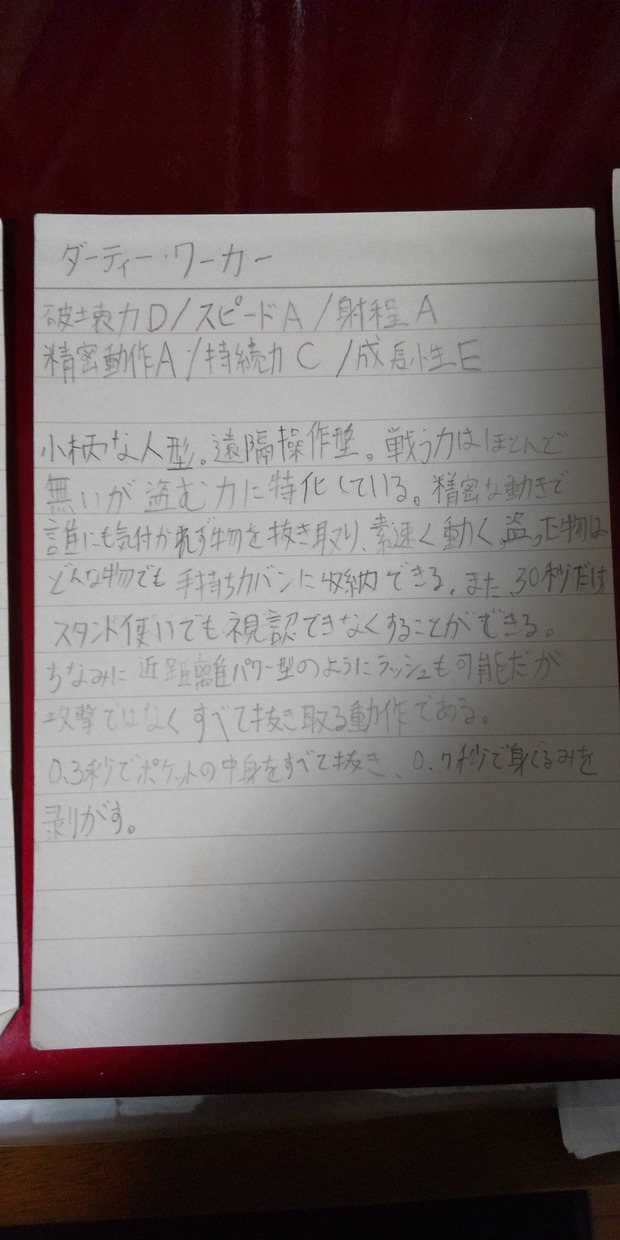 ダーティー・ワーカー
破壊力D/スピードA/射程A
精密動作A/持続力C/成長性E
小柄な人型。遠隔操作型。戦う力はほとんど
無いが盗む力に特化している。精密な動きで
誰にも気付かれず物を抜き取り、素速く動く。盗った物は
どんな物でも手持ちカバンに収納できる。また、30秒だけ
スタンド使いでも視認できなくすることができる。
ちなみに近距離パワー型のようにラッシュも可能だが
攻撃ではなくすべて抜き取る動作である。
0.3秒でポケットの中身をすべて抜き、0.7秒で身ぐるみを
剥がす。